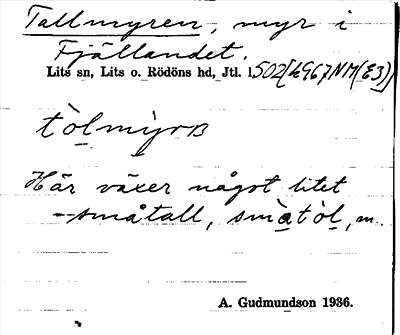 Tallmyren, myr i
Fjällandet.
Lits sn, Lits o. Rödöns hd, Jtl. l.502[49G7NM(E3)]
tòlmyrʙ
Här växer något litet
småtall, småtòl, m.
A. Gudmundson 1936.